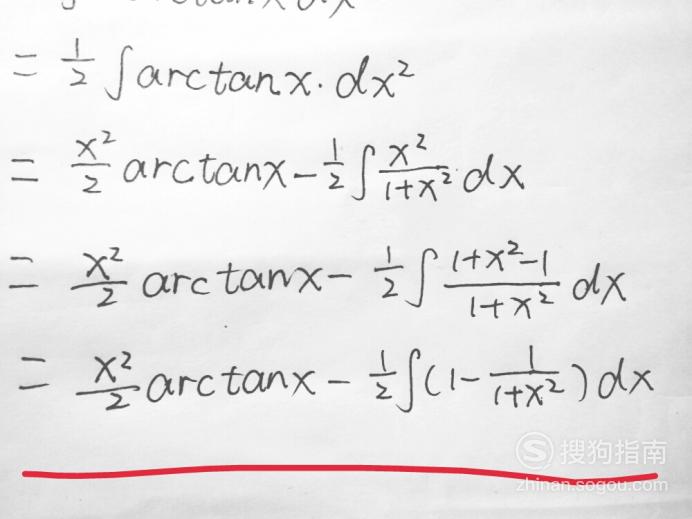 = 1/2 ∫ arctanx · dx²
= x²/2 arctanx - 1/2 ∫ x²/(1+x²) dx
= x²/2 arctanx - 1/2 ∫ (1+x²-1)/(1+x²) dx
= x²/2 arctanx - 1/2 ∫ (1 - 1/(1+x²)) dx
S 搜狗指南
zhinan.sogou.com